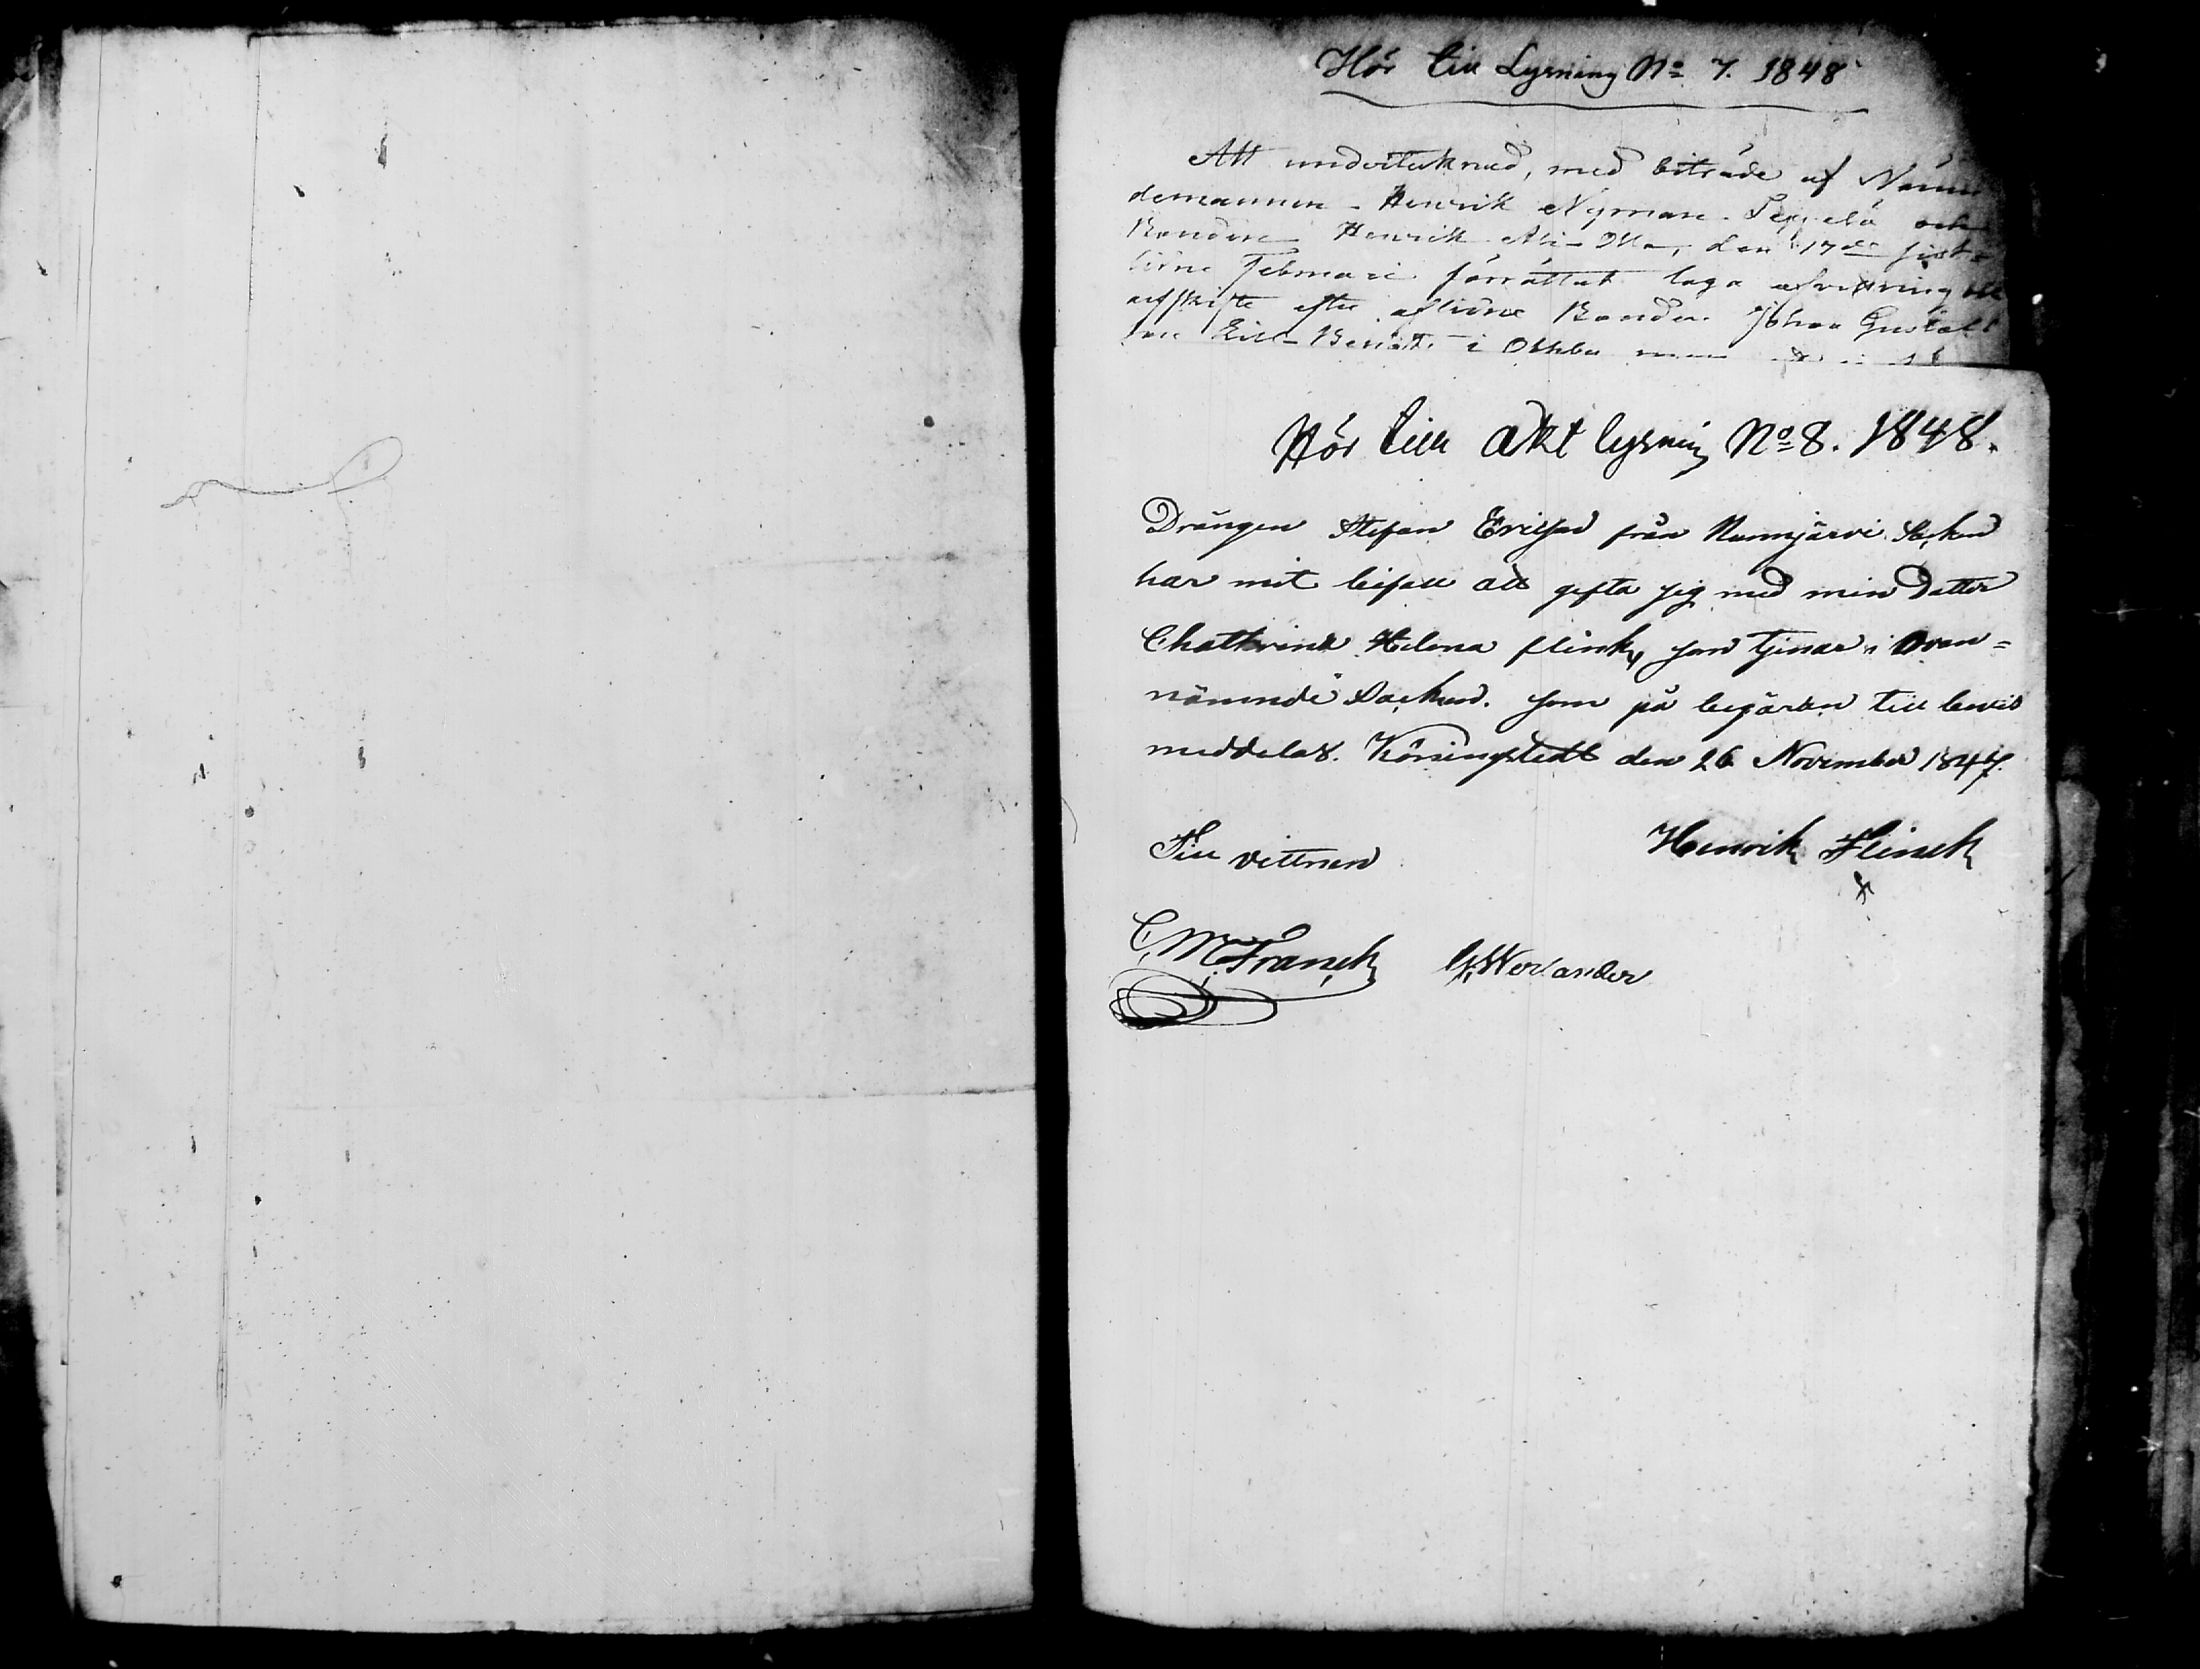 Hör till Lysning No 7. 1848
Att undertecknad, med biträde af Nämn
demannen Henrik Nyman och
Bonden Henrik den 17de sist-
lidne Februari förrättat laga afvittring
arfskifte efter aflidne Bonden Johan Gustaf
i
Hör till Akt lysning No 8. 1848.
Drängen Stefan Ericsson från Nummjärvi Sockn
har mit bifall att gifta sig med min Dotter
Chathrina Helena flink, som tjenar i ovan-
nämnde Sockn. som på begäran till bevis
meddelas. Köningstedt den 26 November 1847.
Till vittnen
Henrik Flinck
C, M, Franck G, Werlander